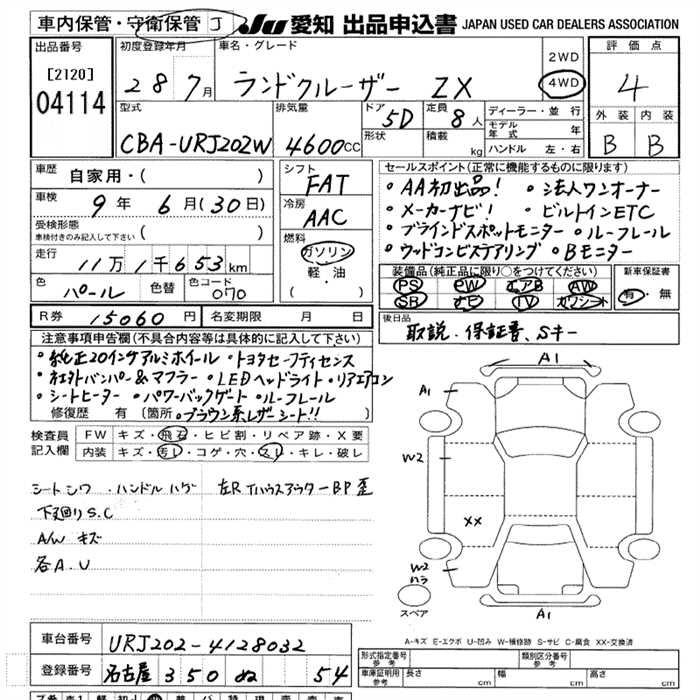 車内保管・守衛保管 J JU 愛知 出品申込書 JAPAN USED CAR DEALERS ASSOCIATION
出品番号
[2120]
04114
初度登録年月 車名・グレード
28 7月 ランドクルーザー ZX
2WD
4WD
評価点
4
外装 内装
B B
型式 排気量 ドア 定員 ディーラー・並行
CBA-URJ202W 4600CC 5D 8人
形状 積載 kg
モデル年式 年
ハンドル 左・右
車歴 自家用・( )
車検 9年 6月(30日)
受検形態
車検付きのみ記入して下さい ( )
走行 11万1千653km
色 パール 色替 色コード 070
シフト FAT
冷房 AAC
燃料 ガソリン
軽・油
( )
セールスポイント(正常に機能するものに限ります)
・AA初出品! ・法人ワンオーナー
・メーカーナビ! ・ビルトインETC
・ブラインドスポットモニター ・ルーフレール
・ウッドコンビステアリング ・Bモニター
装備品(純正品に限り○をつけてください)
PS PW エアB AW
SR ナビ TV カワシート
新車保証書
有・無
R券 15060円 名変期限 月 日
後日品 取説・保証書、Sキー
注意事項申告欄(不具合内容等は具体的に記入して下さい)
・純正20インチアルミホイール ・トヨタセーフティセンス
・社外バンパー&マフラー ・LEDヘッドライト・リアエアコン
・シートヒーター ・パワーバックゲート ・ルーフレール
修復歴 有 (箇所 ・ブラウン系レザーシート!!
検査員記入欄
FW キズ・飛石・ヒビ割・リペア跡・X要
内装 キズ・汚レ・コゲ・穴・スレ・キレ・破レ
シートシワ ・ハンドルハゲ 左RインハウスアウターBP歪
下廻りS.C
A/W キズ
各A.U
A1
A1
W2
XX
W2
ハラ
スペア
A1
A-キズ E-エクボ U-凹み W-補修跡 S-サビ C-腐食 XX-交換済
車台番号 URJ202-4128032
登録番号 名古屋 350 ぬ 54
形式指定番号 参考 類別区分番号 参考
車庫証明用 参考 長さ cm 幅 cm 高さ cm